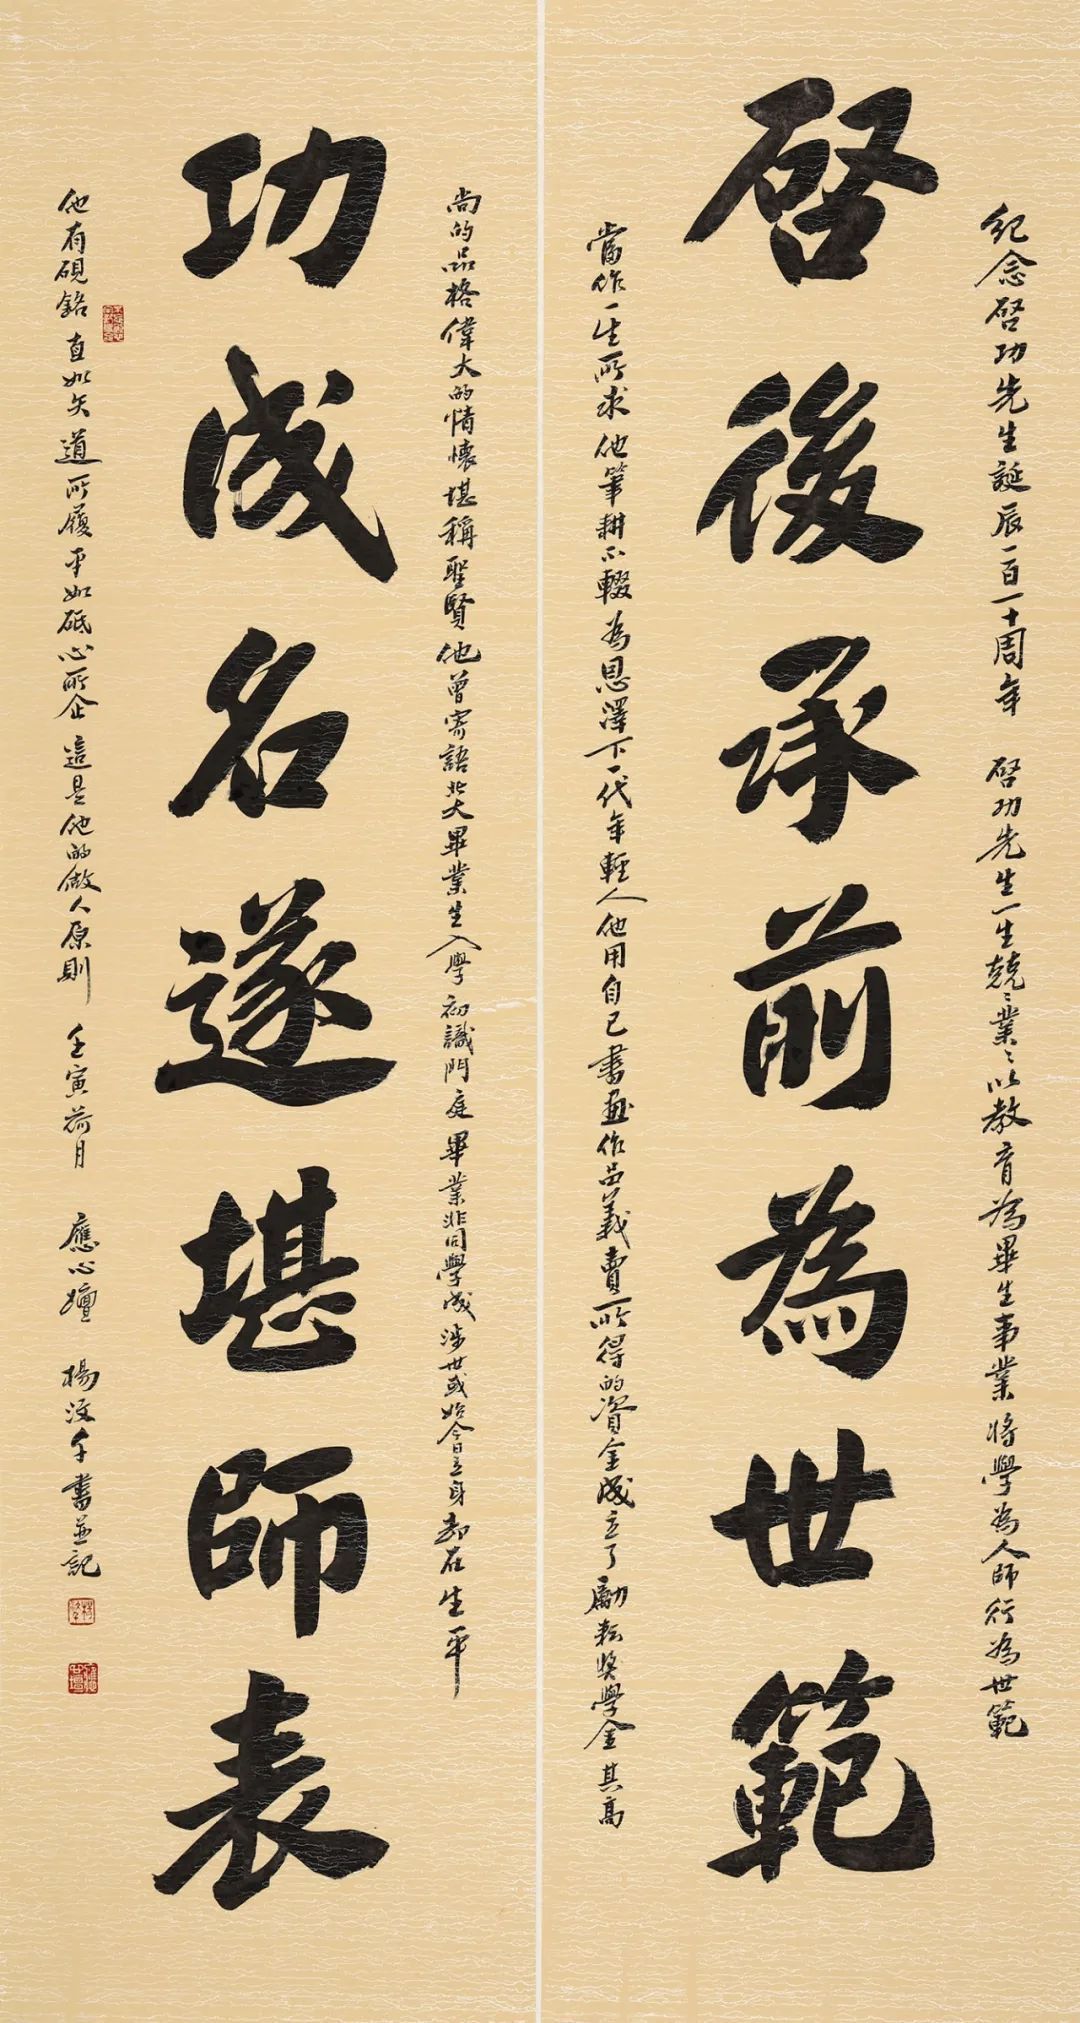 紀念啓功先生誕辰一百一十周年 啓功先生一生兢〻業〻以教育為畢生事業將學為人師行為世範
啓後承前為世範
當作一生所求他筆耕不輟為恩澤下一代年輕人他用自己書画作品義賣所得的資金成立了勵耘奬學金其高
尚的品格偉大的情懷堪稱聖賢他曾寄語北大畢業生入學初識門庭畢業非同學成涉世或始今日立身却在生平
功成名遂堪師表
他有硯銘直如矢道所履平如砥心所企這是他的做人原則 壬寅荷月 應心壇 楊汶千書並記